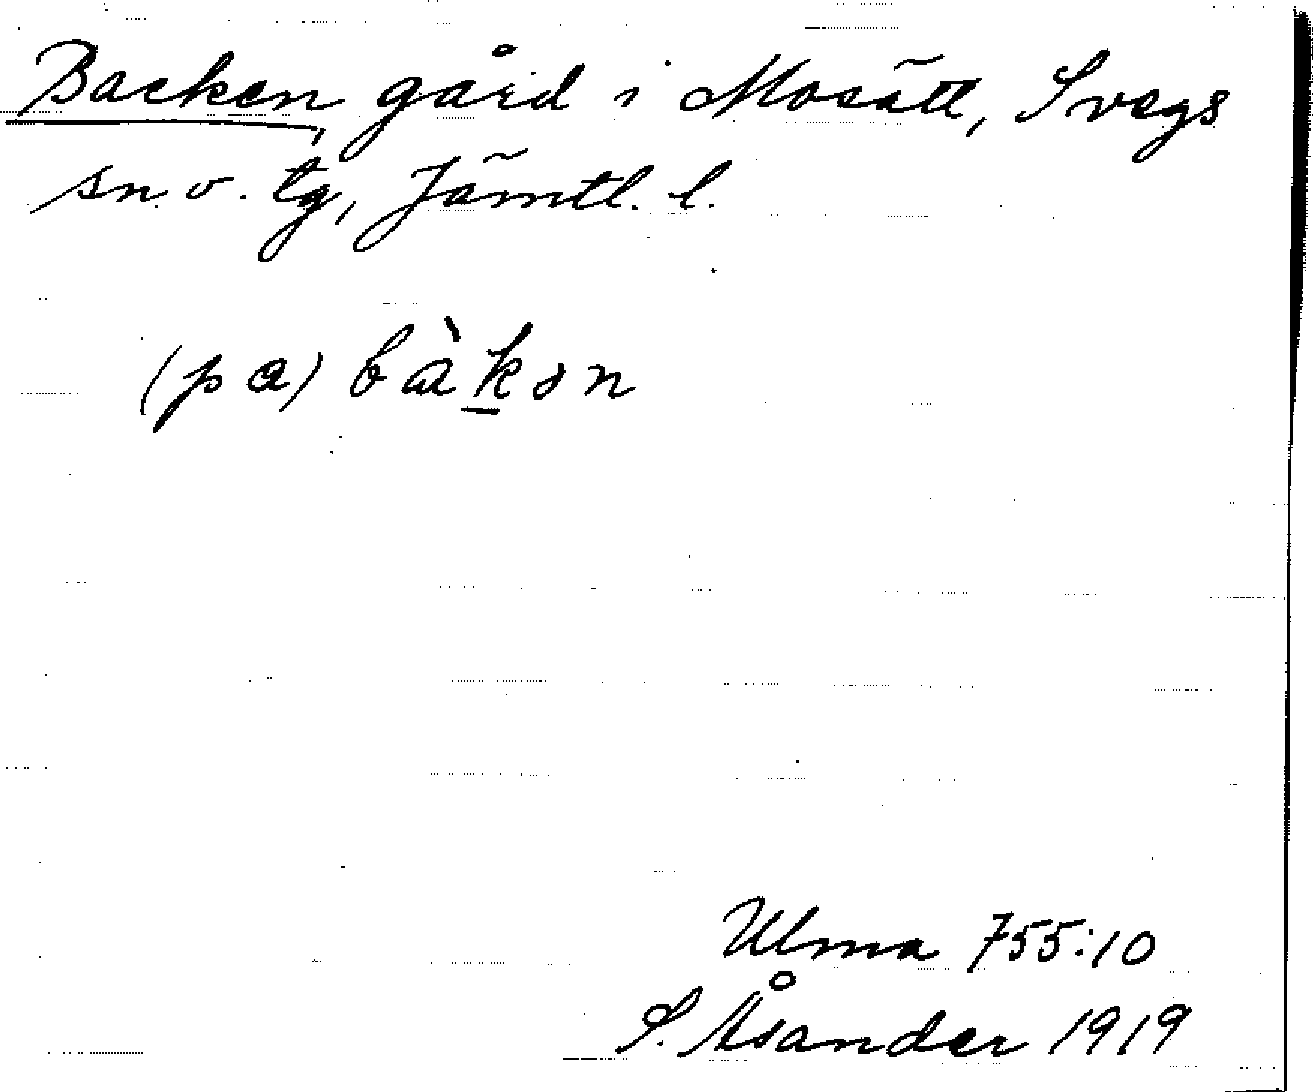 Backen, gård i Mosätt, Svegs
sn o. tg, Jämtl. l.
(pa) bàkən
Ulma 755:10
S. Åsander 1919